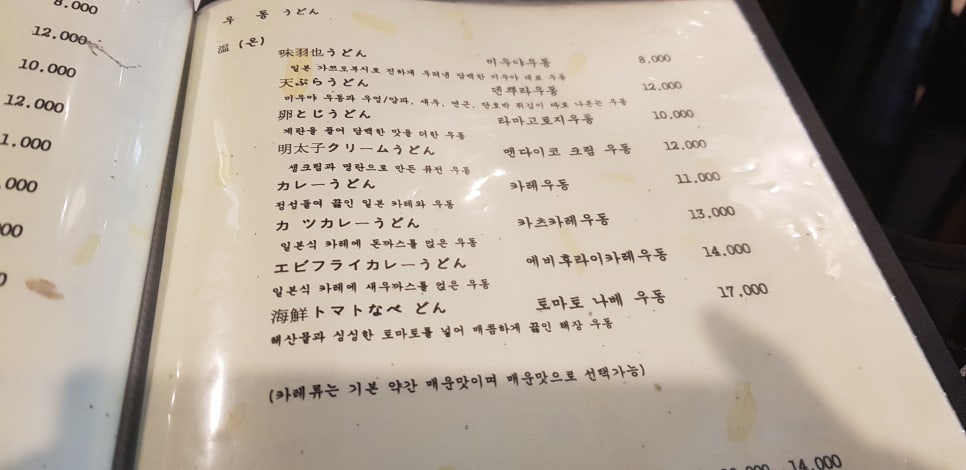 8.000
12.000
10.000
12.000
1.000
.000
00
0
우 동 うどん
温 (온)
味羽也うどん 미우야우동 8.000
일본 가쯔오부시로 진하게 우려낸 담백한 미우야 대표 우동
天ぷらうどん 덴뿌라우동 12.000
미우야 우동과 우엉/양파, 새우, 연근, 단호박 튀김이 따로 나오는 우동
卵とじうどん 타마고토지우동 10.000
계란을 풀어 담백한 맛을 더한 우동
明太子クリームうどん 멘다이코 크림 우동 12.000
생크림과 명란으로 만든 퓨전 우동
カレーうどん 카레우동 11.000
정성들여 끓인 일본 카레와 우동
カ ツカレーうどん 카츠카레우동 13.000
일본식 카레에 돈까스를 얹은 우동
エビフライカレーうどん 에비후라이카레우동 14.000
일본식 카레에 새우까스를 얹은 우동
海鮮トマトなべ どん 토마토 나베 우동 17.000
해산물과 싱싱한 토마토를 넣어 매콤하게 끓인 해장 우동
(카레류는 기본 약간 매운맛이며 매운맛으로 선택가능)
14.000